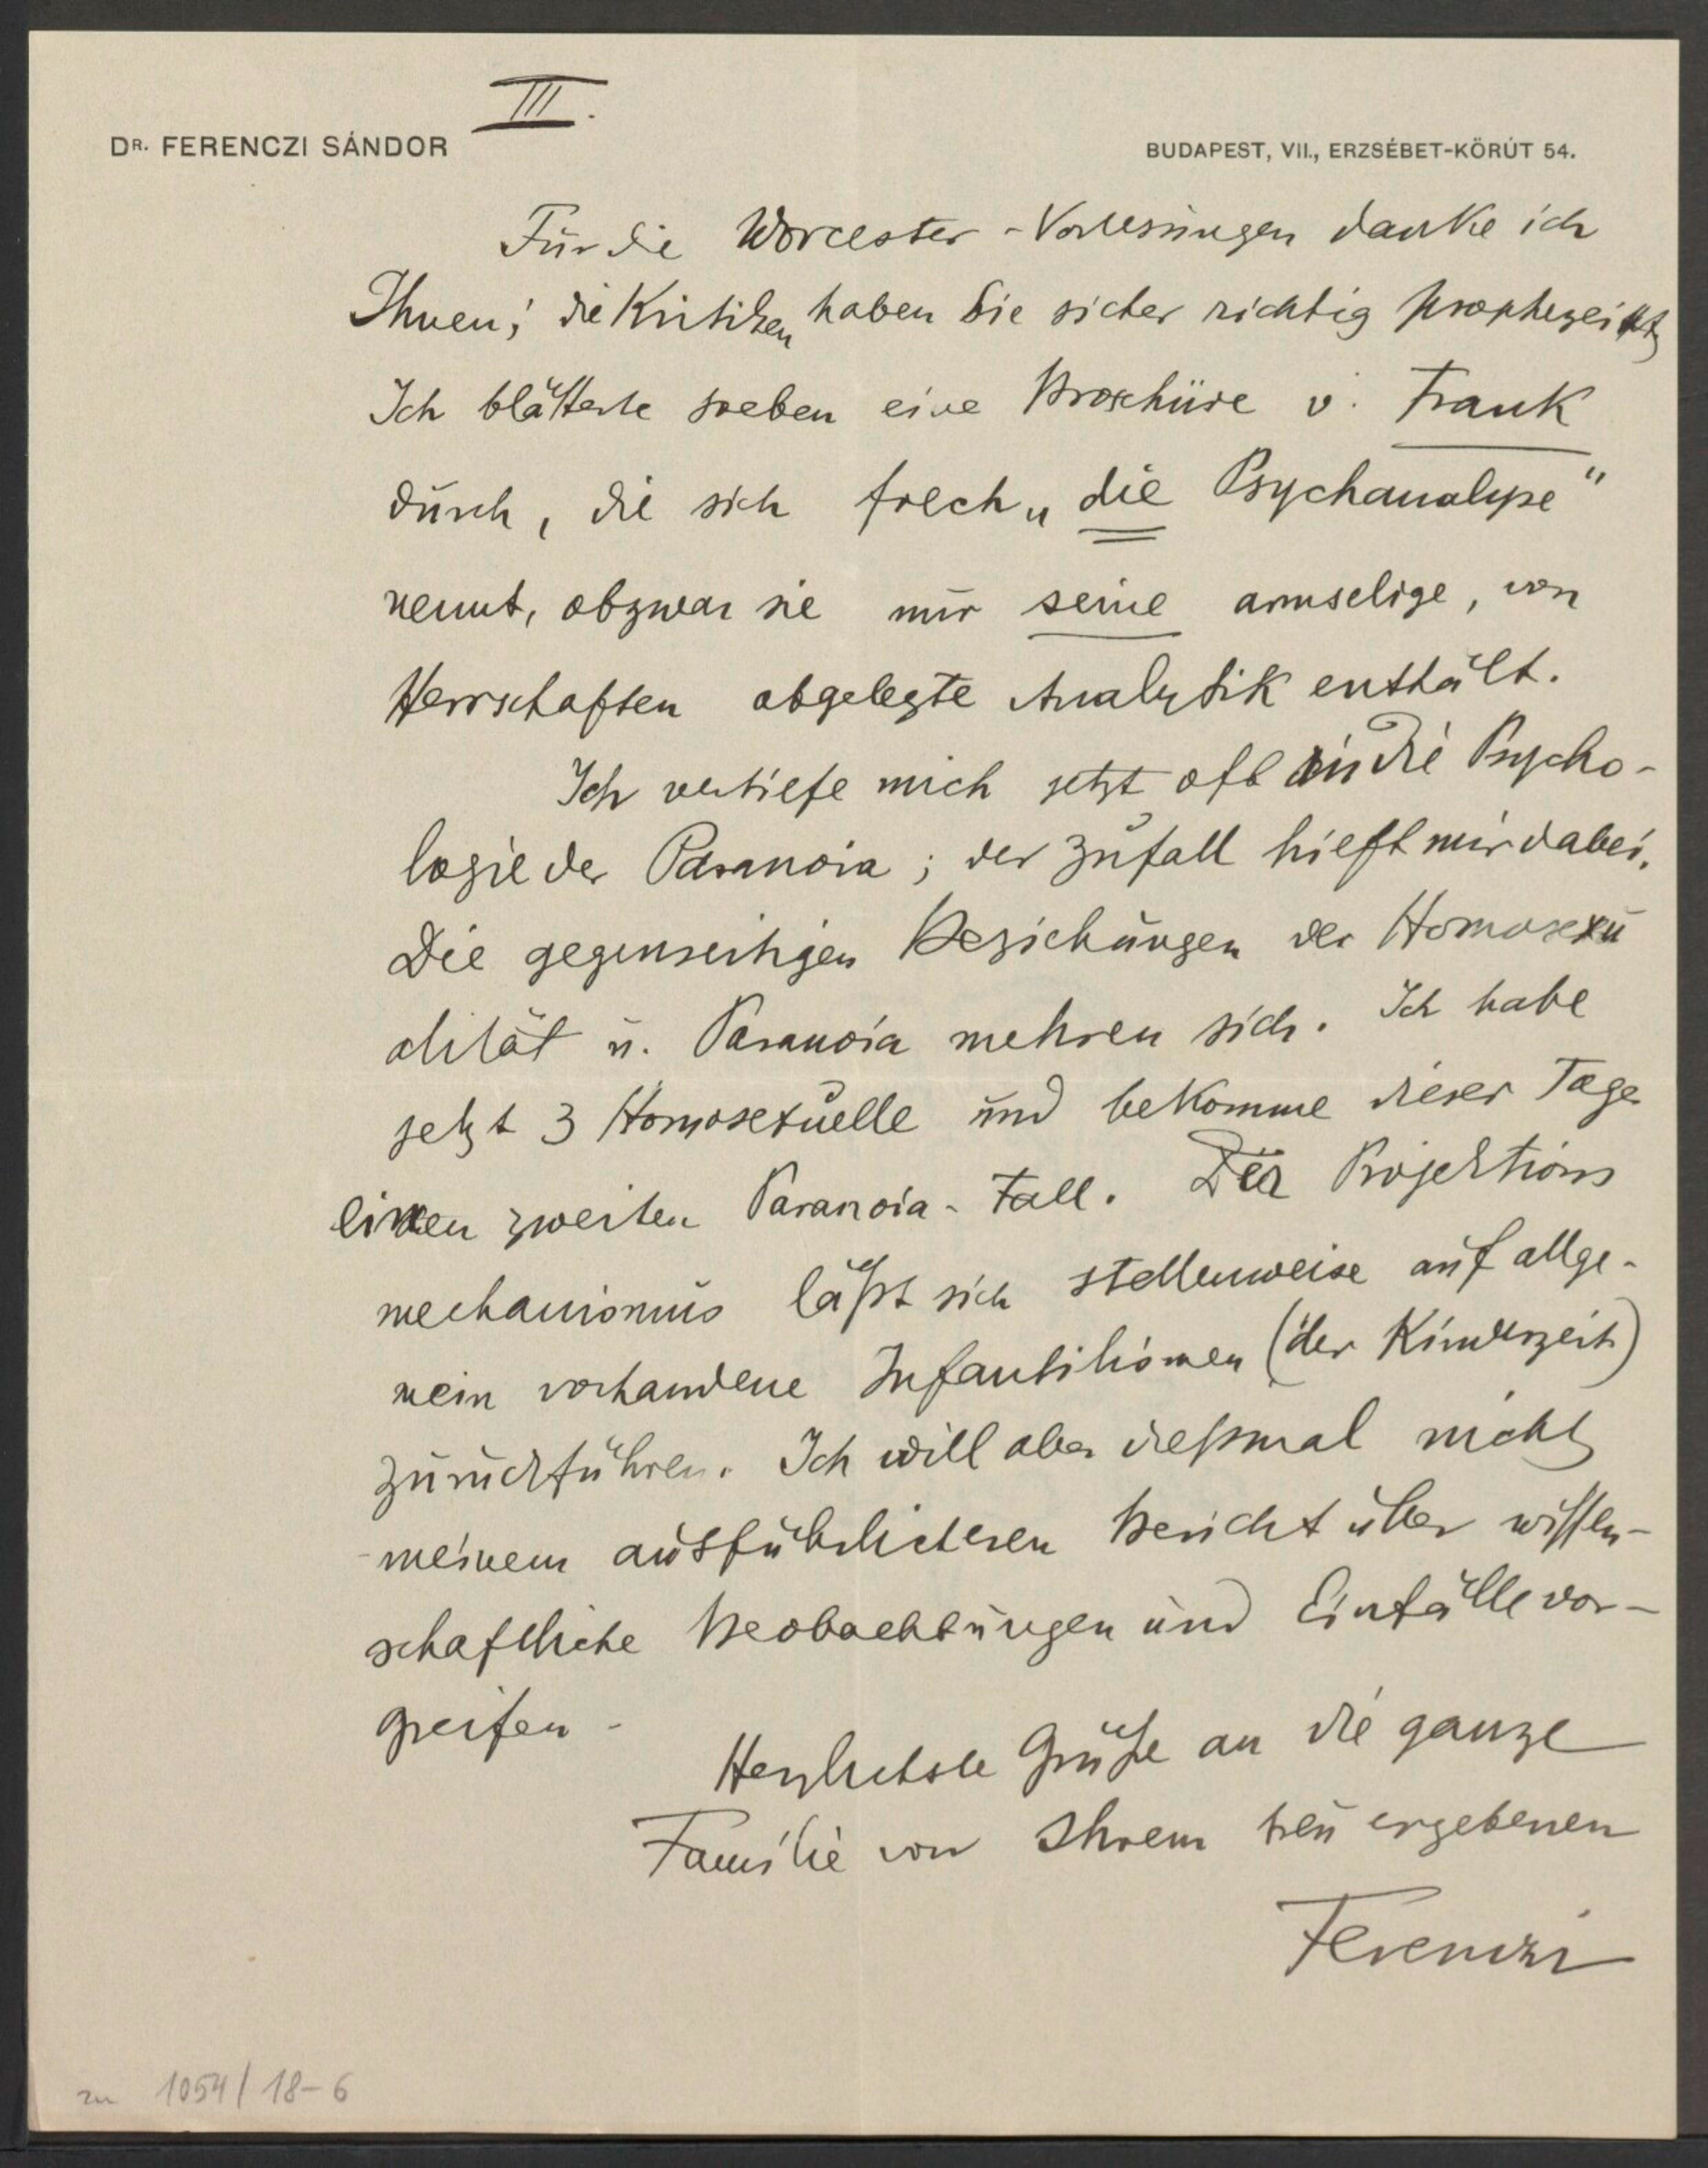 III.
DR. FERENCZI SÁNDOR
BUDAPEST, VII., ERZSÉBET-KÖRÚT 54.
Für die Worcester-Vorlesungen danke ich
Ihnen; die Kritiken haben Sie sicher richtig prophezeit
Ich blätterte soeben eine Broschüre v. Frank
durch, die sich frech „die Psychanalyse“
nennt, obzwar sie nur seine armselige, von
Herrschaften abgelegte Analytik enthält.
Ich vertiefe mich jetzt oft in die Psycho-
logie der Paranoia; der Zufall hielft mir dabei.
Die gegenseitigen Beziehungen der Homosexu
alität u. Paranoia mehren sich. Ich habe
jetzt 3 Homosexuelle und bekomme dieser Tage
einen zweiten Paranoia-Fall. Der Projektions
mechanismus läßt sich stellenweise auf allge-
mein vorhandene Infantilismen (der Kinderzeit)
zurückführen. Ich will aber dießmal nicht
meinem ausführlicheren Bericht über wissen-
schaftliche Beobachtungen und Einfälle vor-
greifen -
Herzlichste Grüße an die ganze
Familie von Ihrem treu ergebenen
Ferenczi
zu 1054/18-6